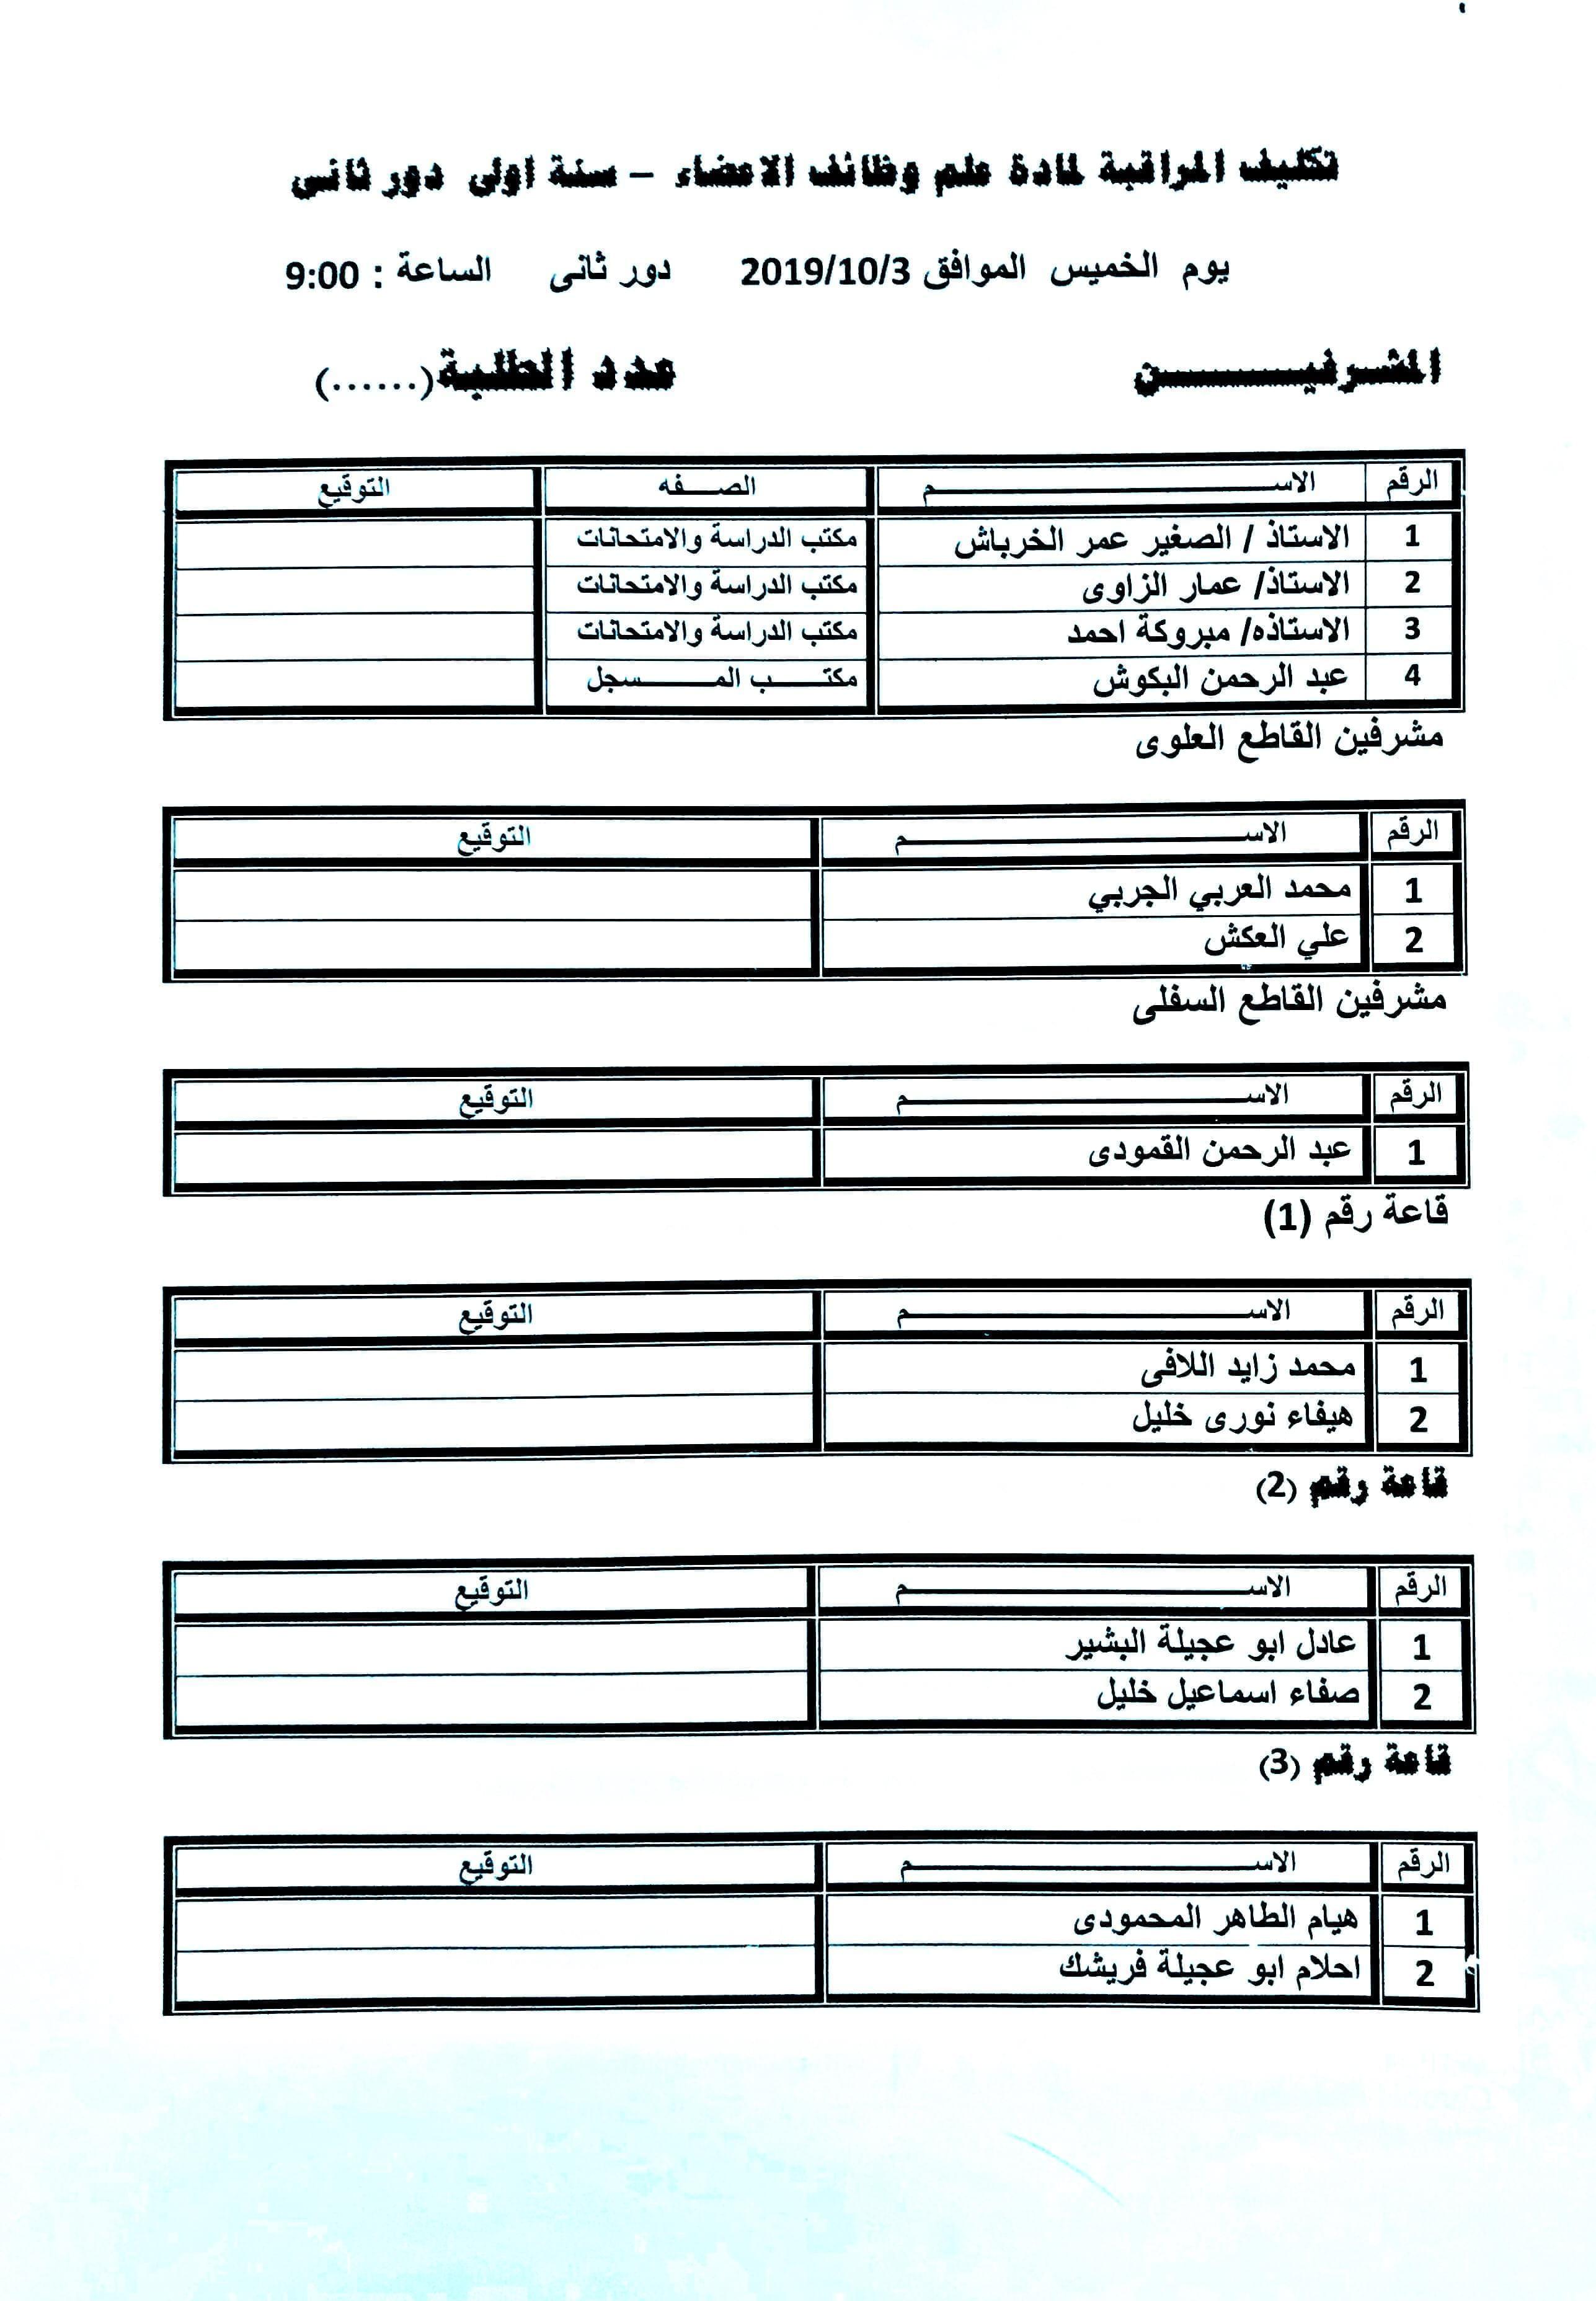 تكليف المراقبة لمادة علم وظائف الاعضاء – سنة اولى دور ثاني
يوم الخميس الموافق 2019/10/3 دور ثانى الساعة : 9:00
المشرفيـــــــن عدد الطلبة(......)
الرقم الاســـــــــــــــم الصـــفه التوقيع
1 الاستاذ / الصغير عمر الخرباش مكتب الدراسة والامتحانات
2 الاستاذ/ عمار الزاوى مكتب الدراسة والامتحانات
3 الاستاذه/ مبروكة احمد مكتب الدراسة والامتحانات
4 عبد الرحمن البكوش مكتـــب المـــــسجل
مشرفين القاطع العلوى
الرقم الاســـــــــــــــم التوقيع
1 محمد العربي الجربي
2 علي العكش
مشرفين القاطع السفلى
الرقم الاســـــــــــــــم التوقيع
1 عبد الرحمن القمودى
قاعة رقم (1)
الرقم الاســـــــــــــــم التوقيع
1 محمد زايد اللافى
2 هيفاء نورى خليل
قاعة رقم (2)
الرقم الاســـــــــــــــم التوقيع
1 عادل ابو عجيلة البشير
2 صفاء اسماعيل خليل
قاعة رقم (3)
الرقم الاســـــــــــــــم التوقيع
1 هيام الطاهر المحمودى
2 احلام ابو عجيلة فريشك